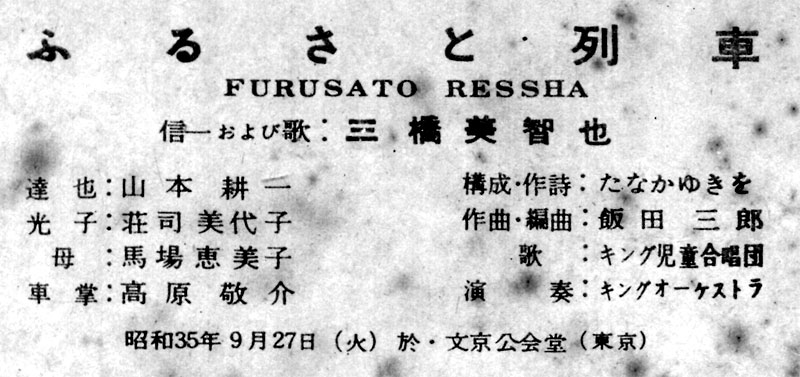 ふるさと列車
FURUSATO RESSHA
信一および歌：三橋美智也
達也：山本耕一
光子：荘司美代子
母：馬場恵美子
車掌：高原敬介
構成・作詩：たなかゆきを
作曲・編曲：飯田三郎
歌：キング児童合唱団
演奏：キングオーケストラ
昭和35年9月27日（火）於・文京公会堂（東京）